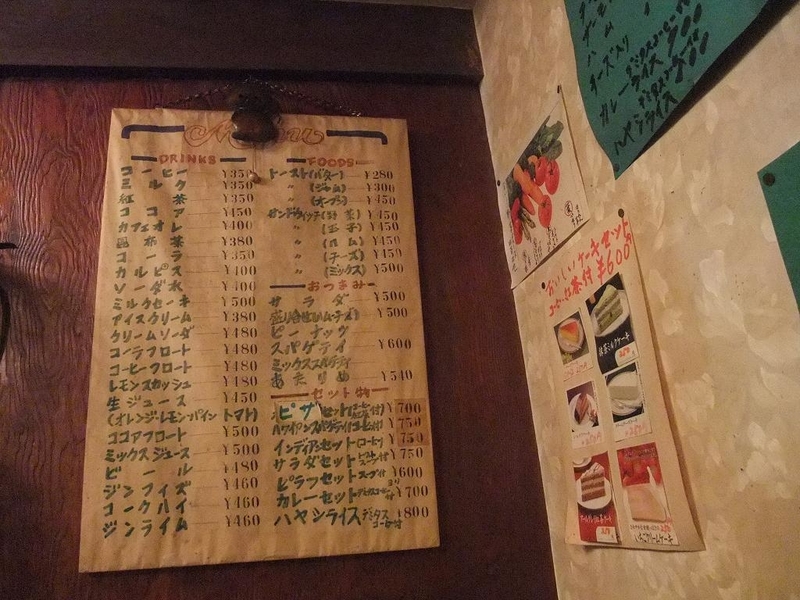 Menu
DRINKS
コーヒー ¥350
ミルク ¥350
紅茶 ¥350
ココア ¥450
カフェオレ ¥400
昆布茶 ¥380
コーラ ¥350
カルピス ¥400
ソーダ水 ¥400
ミルクセーキ ¥500
アイスクリーム ¥380
クリームソーダ ¥480
コーラフロート ¥480
コーヒーフロート ¥480
レモンスカッシュ ¥480
生ジュース ¥450
(オレンジ・レモン・パイン トマト)
ココアフロート ¥500
ミックスジュース ¥500
ビール ¥480
ジンフィズ ¥460
コークハイ ¥460
ジンライム ¥460
FOODS
トースト(バター) ¥280
〃 (ジャム) ¥300
〃 (オープン) ¥450
サンドウィッチ(野菜) ¥450
〃 (玉子) ¥450
〃 (ハム) ¥450
〃 (チーズ) ¥450
〃 (ミックス) ¥500
おつまみ
サラダ ¥500
盛り合せ(ハム・チーズ) ¥500
ピーナッツ
スパゲティ ¥600
ミックススパゲティ
あたりめ ¥540
セット物
ピザセット ¥700
ハワイアンスパゲティ ¥750
インディアンセット ¥750
サラダセット ¥750
ピラフセット ¥600
カレーセット ¥700
ハヤシライス デミタスコーヒー付 ¥800
ハム
チーズ入り
カレーライス 700
ハヤシライス
おいしいケーキセット
コーヒー・紅茶付 ¥600
抹茶ミルクケーキ
いちごクリームケーキ